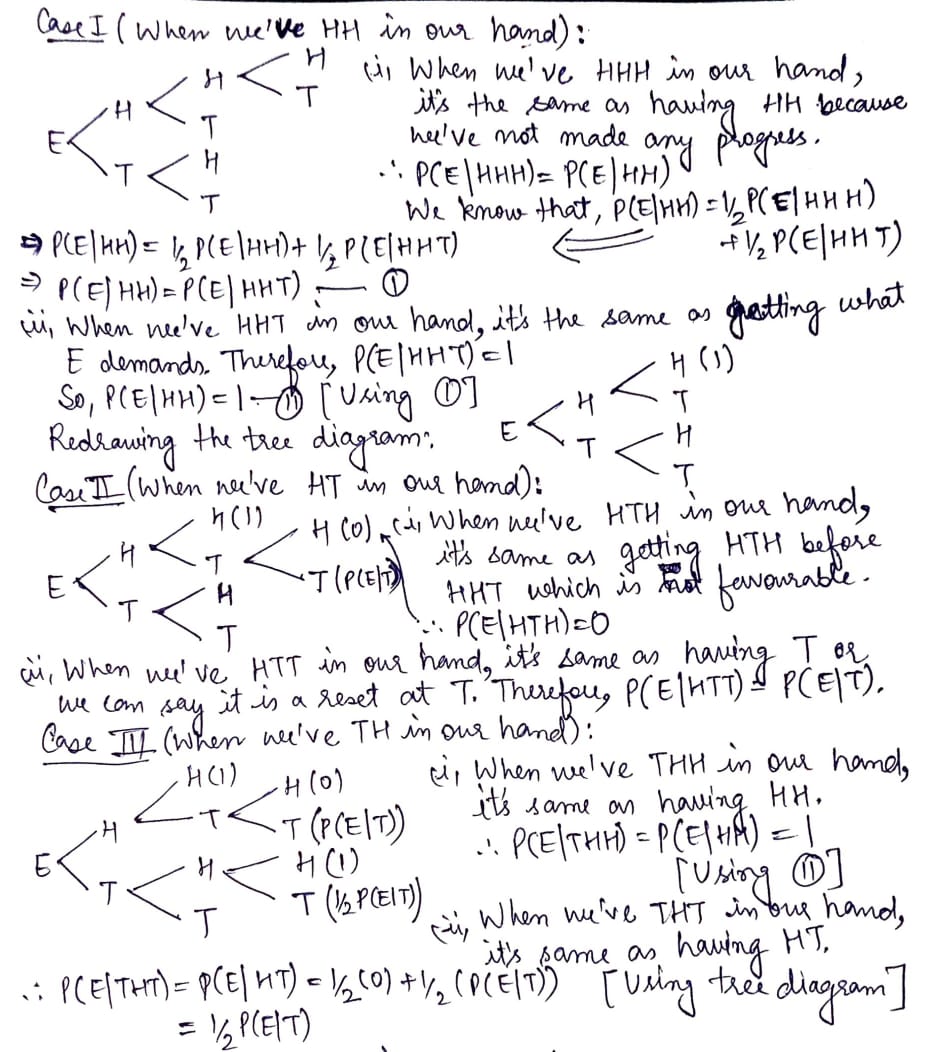 Case I (When we've HH in our hand):
E H T H T H T H T
(i) When we've HHH in our hand,
it's the same as having HH because
we've not made any progress.
∴ P(E|HHH) = P(E|HH)
We know that, P(E|HH) = 1/2 P(E|HHH)
+ 1/2 P(E|HHT)
⇒ P(E|HH) = 1/2 P(E|HH) + 1/2 P(E|HHT) ⇐
⇒ P(E|HH) = P(E|HHT) — ①
(ii) When we've HHT in our hand, it's the same as getting what
E demands. Therefore, P(E|HHT) = 1
So, P(E|HH) = 1 — ⑪ [Using ①]
Redrawing the tree diagram:
E H T H (1) T H T
Case II (When we've HT in our hand):
E H T H (1) T H T H (0) T (P(E|T))
(i) When we've HTH in our hand,
it's same as getting HTH before
HHT which is not favourable.
∴ P(E|HTH) = 0
(ii) When we've HTT in our hand, it's same as having T or
we can say it is a reset at T. Therefore, P(E|HTT) = P(E|T).
Case III (When we've TH in our hand):
E H T H (1) T H T H (0) T (P(E|T)) H (1) T (1/2 P(E|T))
(i) When we've THH in our hand,
it's same as having HH.
∴ P(E|THH) = P(E|HH) = 1
[Using ⑪]
(ii) When we've THT in our hand,
it's same as having HT.
∴ P(E|THT) = P(E|HT) = 1/2 (0) + 1/2 (P(E|T)) [Using tree diagram]
= 1/2 P(E|T)